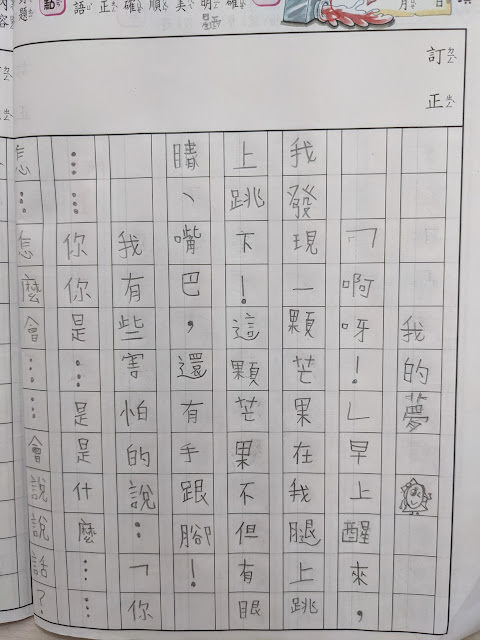 訂正
我的夢
「啊呀!」早上醒來,
我發現一顆芒果在我腿上跳
上跳下!這顆芒果不但有眼
睛、嘴巴,還有手跟腳!
我有些害怕的說:「你
……你你是…是是什麼……
怎…怎麼會……會說說話?